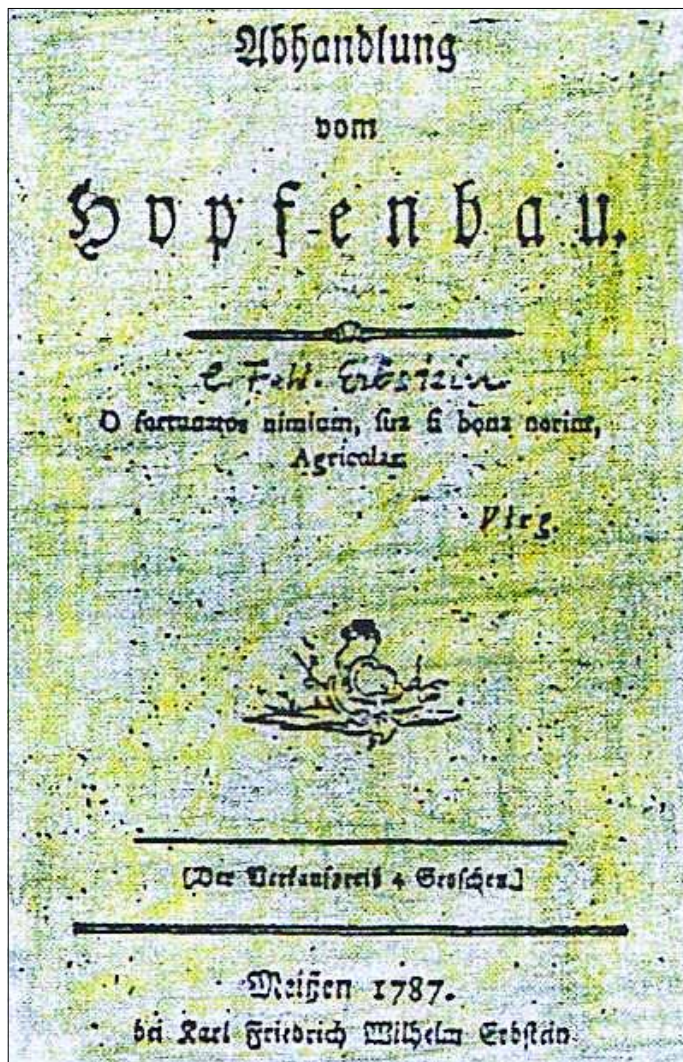 Abhandlung
vom
Hopfenbau.
C. F. W. Erbstein
O fortunatos nimium, sua si bona norint,
Agricolas
Virg.
[Der Verkaufpreiß 4 Groschen.]
Meißen 1787.
bei Karl Friedrich Wilhelm Erbstein